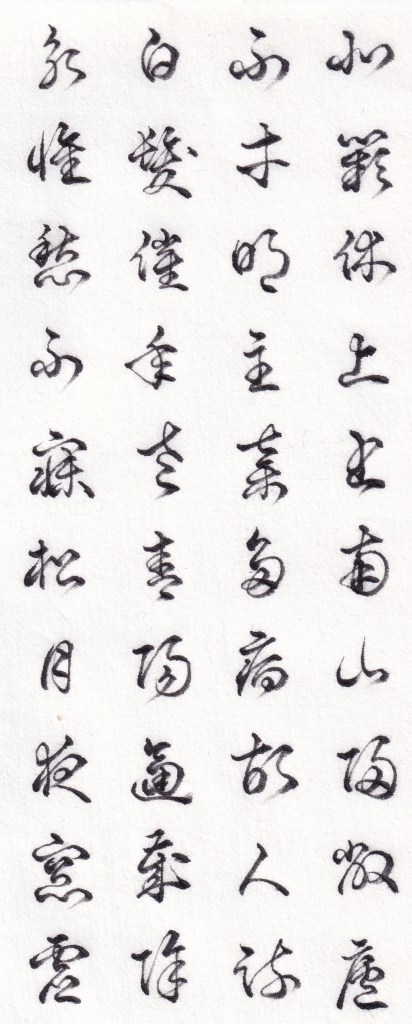 北闕休上書南山歸敝廬
不才明主棄多病故人疎
白髮催年老青陽逼歲除
永懷愁不寐松月夜窓虛